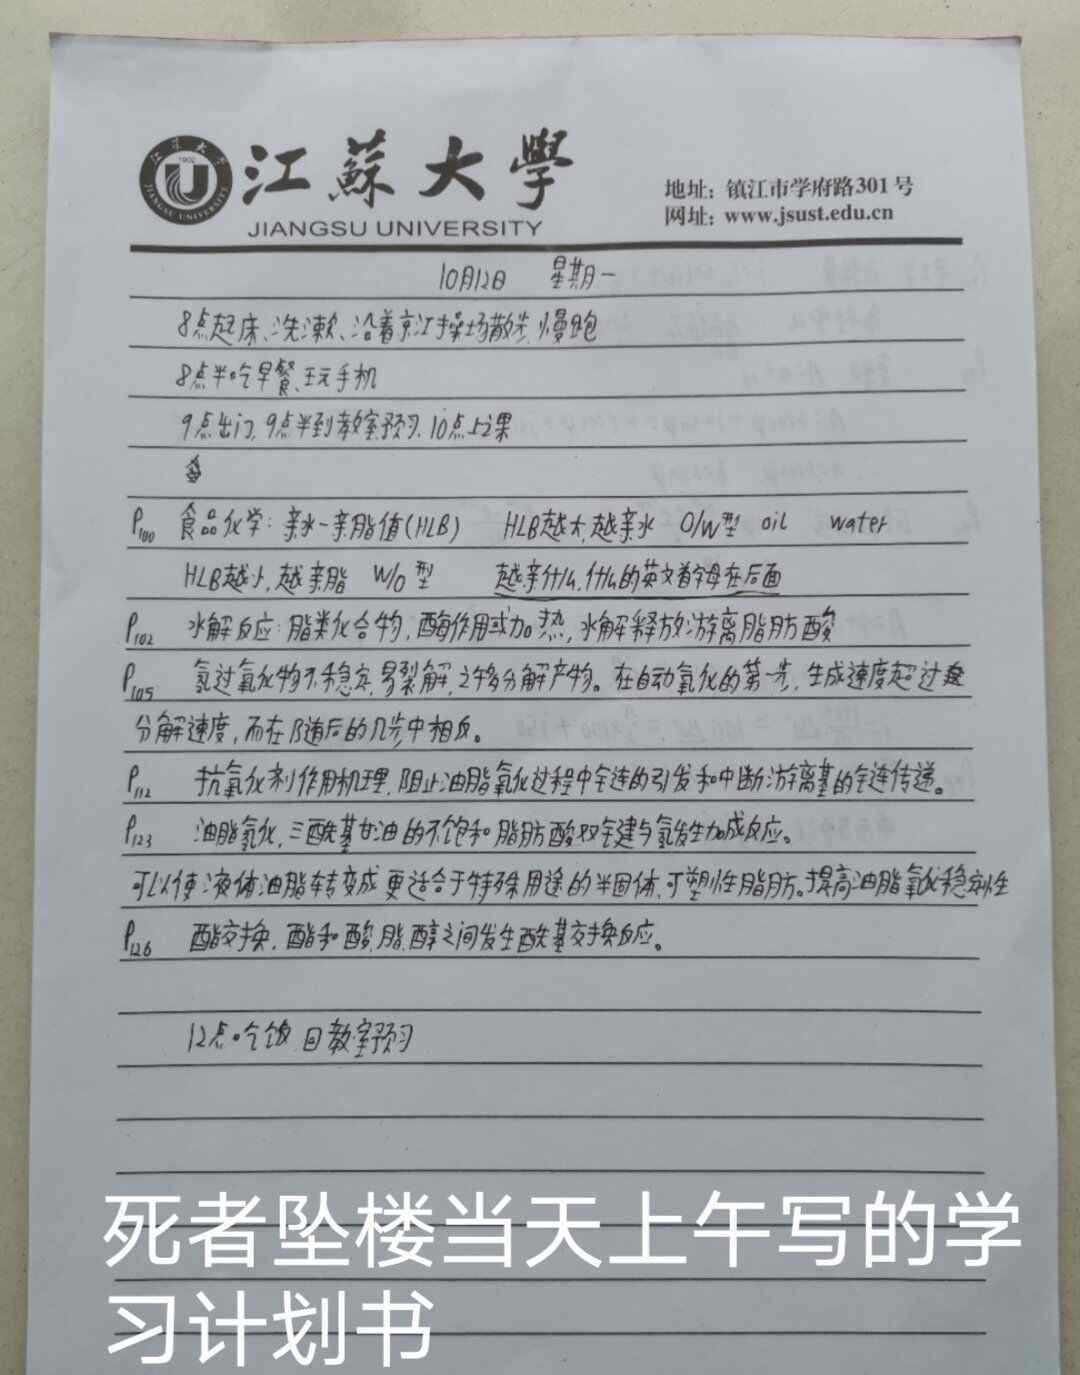 江蘇大學
JIANGSU UNIVERSITY
地址：镇江市学府路301号
网址：www.jsust.edu.cn
10月12日 星期一
8点起床、洗漱、沿着京江操场散步，慢跑
8点半吃早餐、玩手机
9点出门，9点半到教室预习，10点上课
P100 食品化学：亲水-亲脂值(HLB) HLB越大，越亲水 O/W型 oil water
HLB越小，越亲脂 W/O型 越亲什么，什么的英文首字母在后面
P102 水解反应：脂类化合物，酶作用或加热，水解释放游离脂肪酸
P105 氢过氧化物不稳定，易裂解，之多分解产物。在自动氧化的第一步，生成速度超过
分解速度，而在随后的几步中相反。
P112 抗氧化剂作用机理，阻止油脂氧化过程中链的引发和中断游离基的链传递。
P123 油脂氢化，三酰基甘油的不饱和脂肪酸双键与氢发生加成反应。
可以使液体油脂转变成更适合于特殊用途的半固体，可塑性脂肪。提高油脂氧化稳定性
P126 酯交换，酯和酸，脂，醇之间发生酰基交换反应。
12点吃饭，回教室预习
死者坠楼当天上午写的学
习计划书